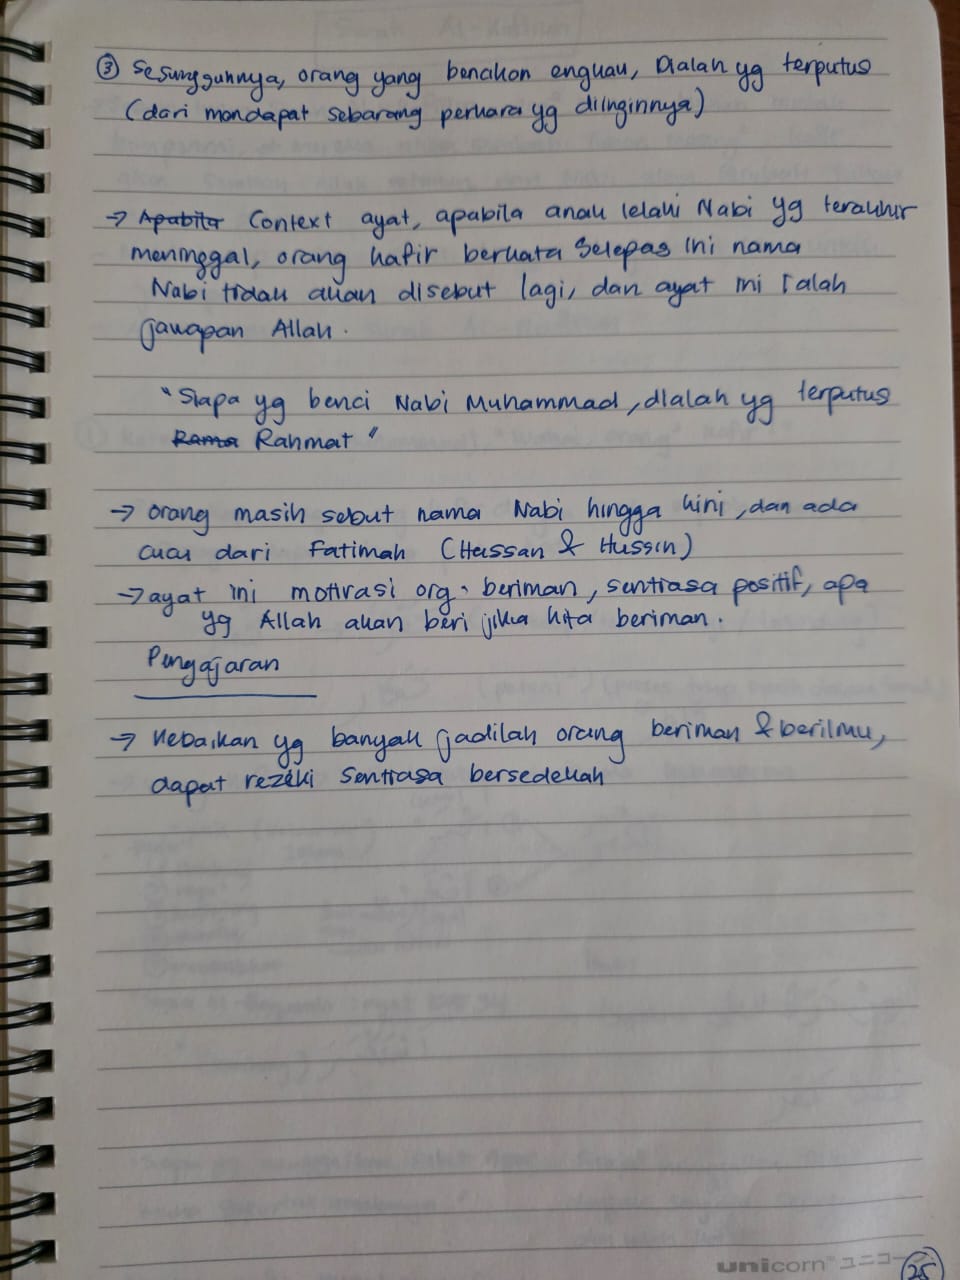 ③ Sesungguhnya, orang yang bencikan engkau, Dialah yg terputus
(dari mendapat sebarang perkara yg diinginnya)
→ Apabila Context ayat, apabila anak lelaki Nabi yg terakhir
meninggal, orang kafir berkata selepas ini nama
Nabi tidak akan disebut lagi, dan ayat ini ialah
jawapan Allah.
"Siapa yg benci Nabi Muhammad, dialah yg terputus
Rama Rahmat"
→ orang masih sebut nama Nabi hingga kini, dan ada
cucu dari Fatimah (Hassan & Hussin)
→ ayat ini motivasi org. beriman, sentiasa positif, apa
yg Allah akan beri jika kita beriman.
Pengajaran
→ Kebaikan yg banyak jadilah orang beriman & berilmu,
dapat rezeki sentiasa bersedekah
unicorn™ ユニコーン
25